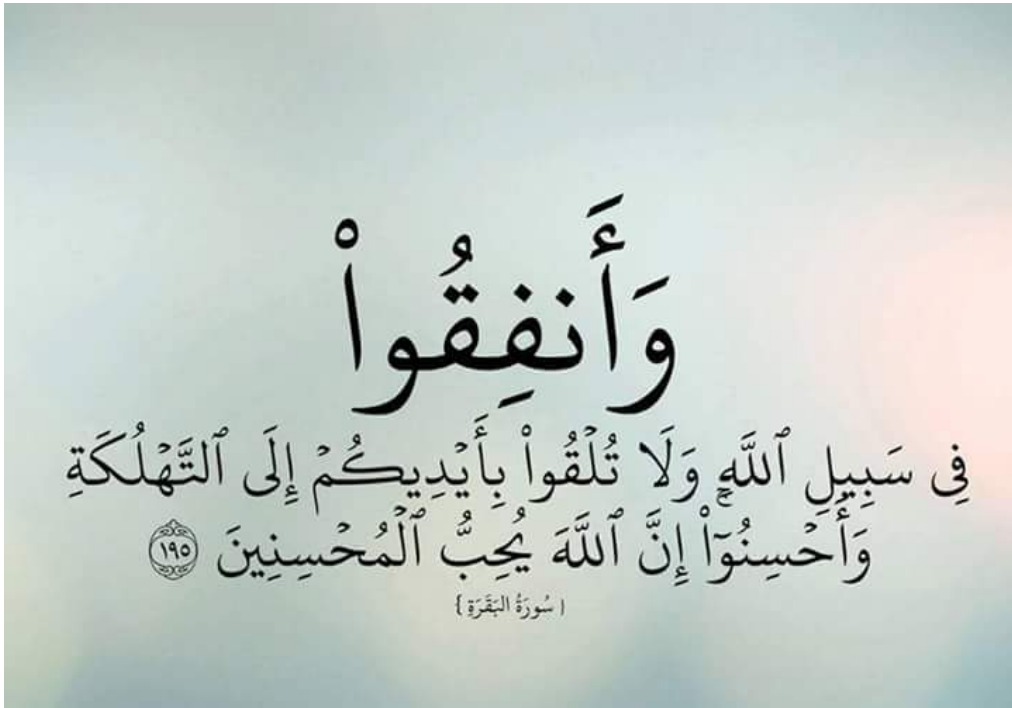 وَأَنفِقُوا۟
فِى سَبِيلِ ٱللَّهِ وَلَا تُلْقُوا۟ بِأَيْدِيكُمْ إِلَى ٱلتَّهْلُكَةِ
وَأَحْسِنُوٓا۟ إِنَّ ٱللَّهَ يُحِبُّ ٱلْمُحْسِنِينَ ١٩٥
{ سُورَةُ البَقَرَةِ }